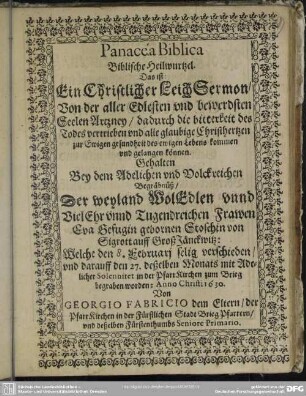 Panacæa Biblica
Biblische Heilwurtzel.
Das ist
Ein Christlicher Leich Sermon/
Von der aller Edlesten vnd bewerdsten
Seelen Artzney / dadurch die bitterkeit des
Todes vertrieben vnd alle glaubige Christhertzen
zur Ewigen gesundheit des ewigen Lebens kommen
vnd gelangen können.
Gehalten
Bey dem Adelichen vnd Volckreichen
Begräbnüß/
Der weyland WolEdlen vnnd
Viel Ehr vnnd Tugendreichen Frawen
Eva gebornen Stoschin von
Sigrott auff Groß Jänckwitz:
Welche den 8. February selig verschieden/
vnd darauff den 27. desselben Monats mit Ade-
licher Solennitet in der Pfarr Kirchen zum Brieg
begraben worden: Anno Christi: 1630.
Von
GEORGIO FABRICIO dem Eltern/ der
Pfarr Kirchen in der Fürstlichen Stadt Brieg Pfarrern/
vnd desselben Fürstenthumbs Seniore Primario.